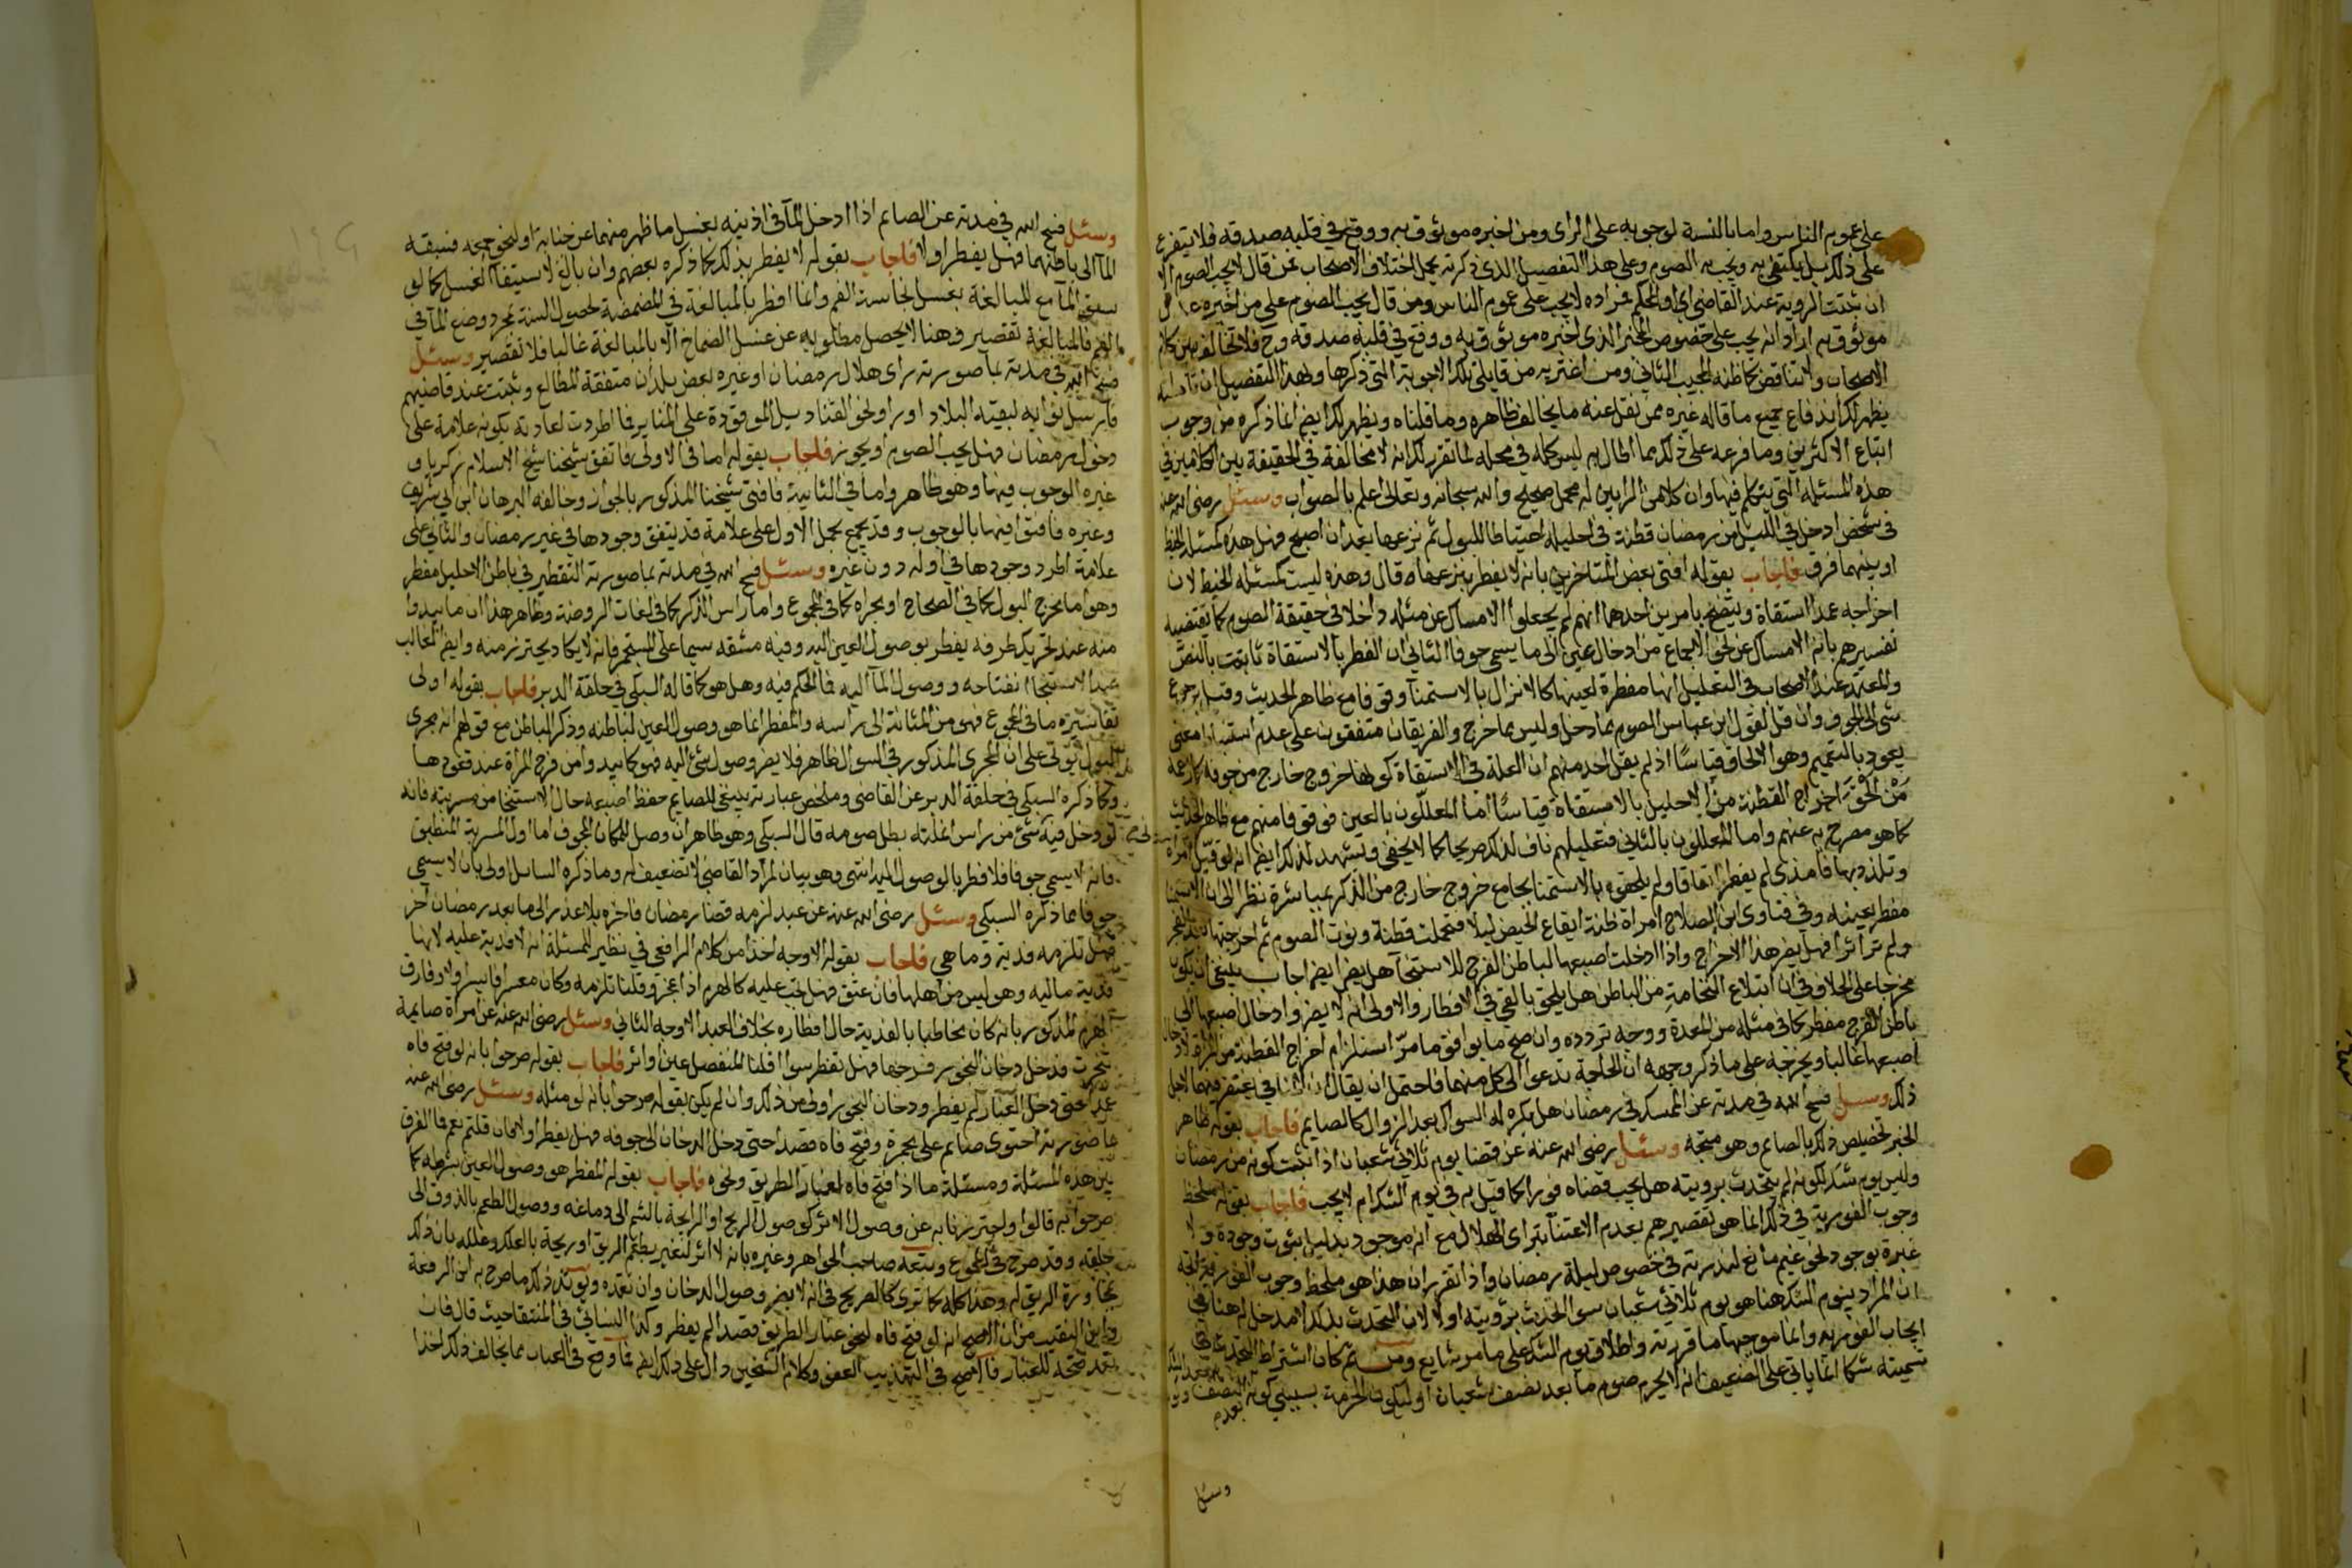 على عموم الناس واما بالنسبة لوجوبه على الراى ومن اخبره موثوق به ووقع في قلبه صدقه فلا يتفرع
على ذلك بل يكتفي به ويجب به الصوم وعلى هذا التفصيل الذى ذكرته يحمل اختلاف الاصحاب فمن قال لا يجب الصوم الا
ان ثبتت الروية عند القاضى اى او الحكم فمراده لا يجب على عموم الناس ومن قال يجب الصوم على من اخبره
موثوق به اراد انه يجب على خصوص المخبر الذى اخبره موثوق به ووقع في قلبه صدقه وح فلا تخالف بين كلام
الاصحاب ولا تناقض كما ظنه المجيب الثاني ومن اغتر به من قايلى تلك الاجوبة التى ذكرها وبهذا التفصيل ان تاملته
يظهر لك اندفاع جميع ما قاله غيره ممن نقل عنه ما يخالف ظاهره وما قلناه ويظهر لك ايضا انما ذكره من وجوب
اتباع الاكثرين وما فرعه على ذلك مما اطال به ليس كله في محله لما تقرر لك انه لا مخالفة في الحقيقة بين الكلامين في
هذه المسئلة التى يتكلم فيها وان كلا من الرايين له محمل صحيح والله سبحانه وتعالى اعلم بالصواب وسئل رضى الله عنه
في شخص ادخل في الليل من رمضان قطنة في احليله احتياطا للبول ثم نزعها بعد ان اصبح فهل هذه كمسئلة الخيط
او بينهما فرق فاجاب بقوله افتى بعض المتاخرين بانه لا يفطر بنزعها قال وهذه ليست كمسئلة الخيط لان
اخراجه عمدا استقاة ويتضح بامرين احدهما انهم لم يجعلوا الامساك عن مثله داخلا في حقيقة الصوم كما يقتضيه
تفسيرهم بانه الامساك عن نحو الجماع من ادخال عين الى ما يسمى جوفا الثاني ان الفطر بالاستقاة ثابت بالنص
والمعتمد عند الاصحاب في التعليل انها مفطرة لعينها كالانزال بالاستمنا وقوفا مع ظاهر الحديث وقيل برجوع
شى الى الجوف وان قل لقول ابن عباس الصوم مما دخل وليس مما خرج والفريقان متفقون على عدم استنباط معنى
يعود بالتعميم وهو الالحاق قياسا اذ لم يقل احد منهم ان العلة في الاستقاة كونها خروج خارج من جوفه كما زعمه
من الحق اخراج القطنة من الاحليل بالاستقاة قياسا اما المعللون بالعين فوقوفا منهم مع ظاهر الحديث
كما هو مصرح به عنهم واما المعللون بالثاني فتعليلهم ناف لذلك صريحا كما لا يخفى ويشهد لذلك ايضا انه لو قبل امراة
وتلذذ بها فامذى لم يفطر اتفاقا ولم يلحقوه بالاستمنا بجامع خروج خارج من الذكر بمباشرة نظرا الى ان الاستمنا
مفطر بعينه وفي فتاوى ابن الصلاح امراة ظنت ايقاع الحيض ليلا فتحملت قطنة ونوت الصوم ثم اخرجتها بعد الفجر
ولم تر اثرا فهل يضر هذا الاخراج واذا ادخلت اصبعها لباطن الفرج للاستنجآ هل يضر ايضا اجاب ينبغي ان يكون
مخرجا على الخلاف في ان ابتلاع النخامة من الباطن هل يلحق بالقي في الافطار والاولى انه لا يضر وادخال اصبعها الى
باطن الفرج مفطر كما في مثله من المعدة ووجه تردده وان صح ما يوافق ما مر استلزام اخراج القطنة من الفرج ادخال
اصبعها غالبا ويخرجه على ما ذكر وجهه ان الحاجة تدعو الى كل منهما فاحتمل ان يقال ان الثاني يغتفر فيهما لاجل
ذلك وسئل فسح الله في مدته عن الممسك في رمضان هل يكره له السواك بعد الزوال كالصايم فاجاب بقوله ظاهر
الخبر تخصيص ذلك بالصايم وهو متجه وسئل رضى الله عنه عن قضا يوم ثلاثى شعبان اذا ثبت كونه من رمضان
وليس يوم شك لكونه لم يتحدث برويته هل يجب قضاه فورا كما قيل به في يوم الشك ام لا يجب فاجاب بقوله ملحظ
وجوب الفورية في ذلك انما هو تقصيرهم بعدم الاعتنا بتراى الهلال مع انه موجود بدليل ثبوت وجوده ولا
عبرة بوجود نحو غيم مانع لندرته في خصوص ليلة رمضان واذا تقرر ان هذا هو ملحظ وجوب الفورية اتجه
ان المراد بيوم الشك هنا هو يوم ثلاثى شعبان سوا اتحدث برويته او لا لان التحدث بذلك لا مدخل له هنا في
ايجاب الفورية وانما موجبها ما قررته واطلاق يوم الشك على ما مر شايع ومن ثم كان اشتراط التحدث انما هو
تسميته شكا انما ياتى على الضعيف انه لا يحرم صوم ما بعد نصف شعبان او لتكون الحرمة بسببين كونه بعد النصف
وسئل
وسئل فسح الله في مدته عن الصايم اذا ادخل المآ في اذنيه بغسل ما ظهر منهما عن جنابة او لنحو جمعه فسبقه
المآ الى باطنهما فهل يفطر او لا فاجاب بقوله لا يفطر بذلك كما ذكره بعضهم وان بالغ لاستيفآ الغسل كما لو
سبق المآ مع المبالغة بغسل نجاسة الفم وانما افطر بالمبالغة في المضمضة لحصول السنة بمجرد وضع المآ في
الفم فالمبالغة تقصير وهنا لا يحصل مطلوبه عن غسل الصماخ الا بالمبالغة غالبا فلا تقصير وسئل
فسح الله في مدته بما صورته راى هلال رمضان او غيره بعض بلدان متفقة المطالع وثبت عند قاضيهم
فارسل نوابه لبقية البلاد او راو نحو القناديل الموقودة على المناير فاطردت لعادته بكونه علامة على
دخول رمضان فهل يجب الصوم او يجوز فاجاب بقوله اما في الاولى فاتفق شيخنا شيخ الاسلام زكريا و
غيره الوجوب فيها وهو ظاهر واما في الثانية فافتى شيخنا المذكور بالجواز وخالفه البرهان ابن ابي شريف
وغيره فافتوا فيها بالوجوب وقد يجمع بحمل الاول على علامة قد يتفق وجودها في غير رمضان والثاني على
علامة اطرد وجودها في اوله دون غيره وسئل فسح الله في مدته بما صورته التقطير في باطن الاحليل مفطر
وهو ما مخرج البول كما في الصحاح او مجراه كما في المجموع واما راس الذكر كما في لغات الروضة وظاهر هذا ان ما يبدوا
منه عند تحريك طرفه يفطر بوصول العين اليه وفيه مشقه سيما على المستجمر فانه لا يكاد يحترز منه وايضا الغالب
عند الاستنجا انفتاحه ووصول المآ اليه فالحكم فيه وهل هو كما قاله السبكي في حلقة الدبر فاجاب بقوله اولى
تفاسيره ما في المجموع فهو من المثانة الى راسه والمفطر انما هو وصول العين لباطنه وذكر الباطن مع قولهم انه مجرى
البول يوتى على ان المجرى المذكور في السوال ظاهر فلا يضر وصول شئ اليه فهو كما يبدو من فرج المراة عند قعودها
وكما ذكره السبكي في حلقة الدبر عن القاضى وملخص عبارته ينبغي للصايم حفظ اصبعه حال الاستنجا من مسربته فانه
لو دخل فيه شئ من راس انملته بطل صومه قال السبكى وهو ظاهر ان وصل للمكان المجوف اما اول المسربة المنطبق
فانه لا يسمى جوفا فلا فطر بالوصول اليه انتهى وهو بيان لمراد القاضى لا تضعيف له وما ذكره السايل اولى بان لا يسمى
جوفا مما ذكره السبكى وسئل رضى الله عنه عن عبد لزمه قضا رمضان فاخره بلا عذر الى ما بعد رمضان آخر
فهل تلزمه فدية وما هي فاجاب بقوله الاوجه اخذا من كلام الرافعي في نظير المسئلة انه لا فدية عليه لانها
فدية ماليه وهو ليس من اهلها فان عتق فهل تجب عليه كالهرم اذا عجز وقلنا تلزمه وكان معسرا فايسر اولا وفارق
الهرم المذكور بانه كان مخاطبا بالفدية حال افطاره بخلاف العبد الاوجه الثاني وسئل رضى الله عنه عن امراة صايمة
تبخرت فدخل دخان البخور فرجها فهل تفطر سوا اقلنا المنفصل عين او اثر فاجاب بقوله صرحوا بانه لو فتح فاه
عمدا حتى دخل الغبار لم يفطر ودخان البخور اولى من ذلك وان لم يكن بقوله صرحوا بانه لو مثله وسئل رضى الله عنه
بما صورته احتوى صايم على مجمرة وفتح فاه قصدا حتى دخل الدخان الى جوفه فهل يفطر او لا فان قلتم نعم فما الفرق
بين هذه المسئلة ومسئلة ما اذا فتح فاه لغبار الطريق ونحوه فاجاب بقوله المفطر هو وصول العين بشرطه كما
صرحوا به قالوا واحترزنا به عن وصول الاثر كوصول الريح او الرايحة بالشم الى دماغه ووصول الطعم بالذوق الى
حلقه وقد صرح في المجموع وتبعه صاحب الجواهر وغيره بانه لا اثر لتغير بطعم الريق او ريحه بالعلك وعلله بان ذلك
بمجاورة الريق له وهذا كله كما ترى كالصريح في انه لا يضر وصول الدخان وان تعمده ويؤيد ذلك ما صرح به ابن الرفعة
وابن النقيب من ان الاصح انه لو فتح فاه لنحو غبار الطريق قصدا لم يفطر وكذا النسائي في المنتقا حيث قال فان
تعمد فتحه للغبار فالاصح في التهذيب العفو وكلام الشيخين دال على ذلك ايضا فما وقع في العباب مما يخالف ذلك اخذا